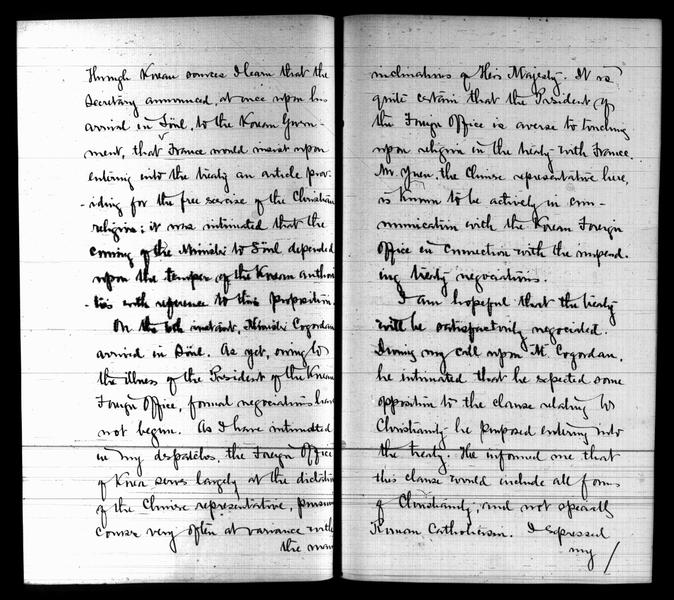 Through Korean sources I learn that the
Secretary announced, at once upon his
arrival in Söul, to the Korean Govern-
ment, that France would insist upon
entering into the treaty an article prov-
iding for the free exercise of the Christian
religion; it was intimated that the
coming of the Minister to Söul depended
upon the temper of the Korean author-
ties with reference to this proposition.
On the 6th instant, Minister Cogordan
arrived in Söul. As yet, owing to
the illness of the President of the Korean
Foreign Office, formal negociations have
not begun. As I have intimated
in my despatches, the Foreign Office
of Korea serves largely at the dictation
of the Chinese representative,
course very often at variance with
the
inclinations of His Majesty. It is
quite certain that the President of
the Foreign Office is averse to touching
upon religion in the treaty with France.
Mr. Yuen, the Chinese representative here,
is known to be actively in com-
munication with the Korean Foreign
Office in connection with the impend-
ing treaty negociations.
I am hopeful that the treaty
will be satisfactorily negociated.
During my call upon M. Cogordan,
he intimated that he expected some
opposition to the clause relating to
Christianity he proposed entering into
the treaty. He informed me that
this clause would include all forms
of Christianity, and not specially
Roman Catholicism. I expressed
my